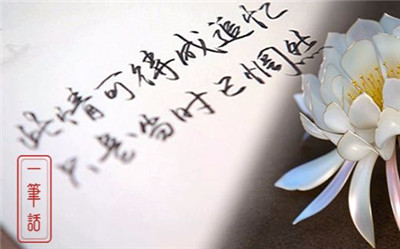 此情可待成追忆
只是当时已惘然
一筆話